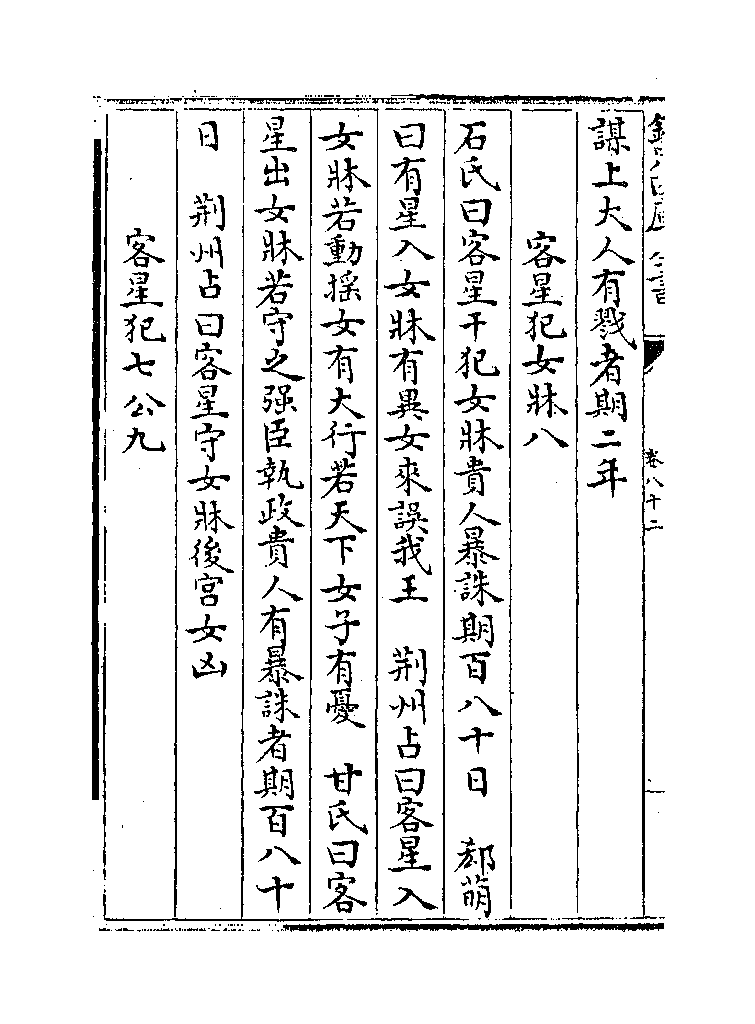 欽定四庫全書
卷八十二
謀上大人有戮者期二年
客星犯女牀八
石氏曰客星干犯女牀貴人暴誅期百八十日　郄萌
曰有星入女牀有異女來誤我王　荆州占曰客星入
女牀若動摇女有大行若天下女子有憂　甘氏曰客
星出女牀若守之强臣執政貴人有暴誅者期百八十
日　荆州占曰客星守女牀後宫女凶
客星犯七公九